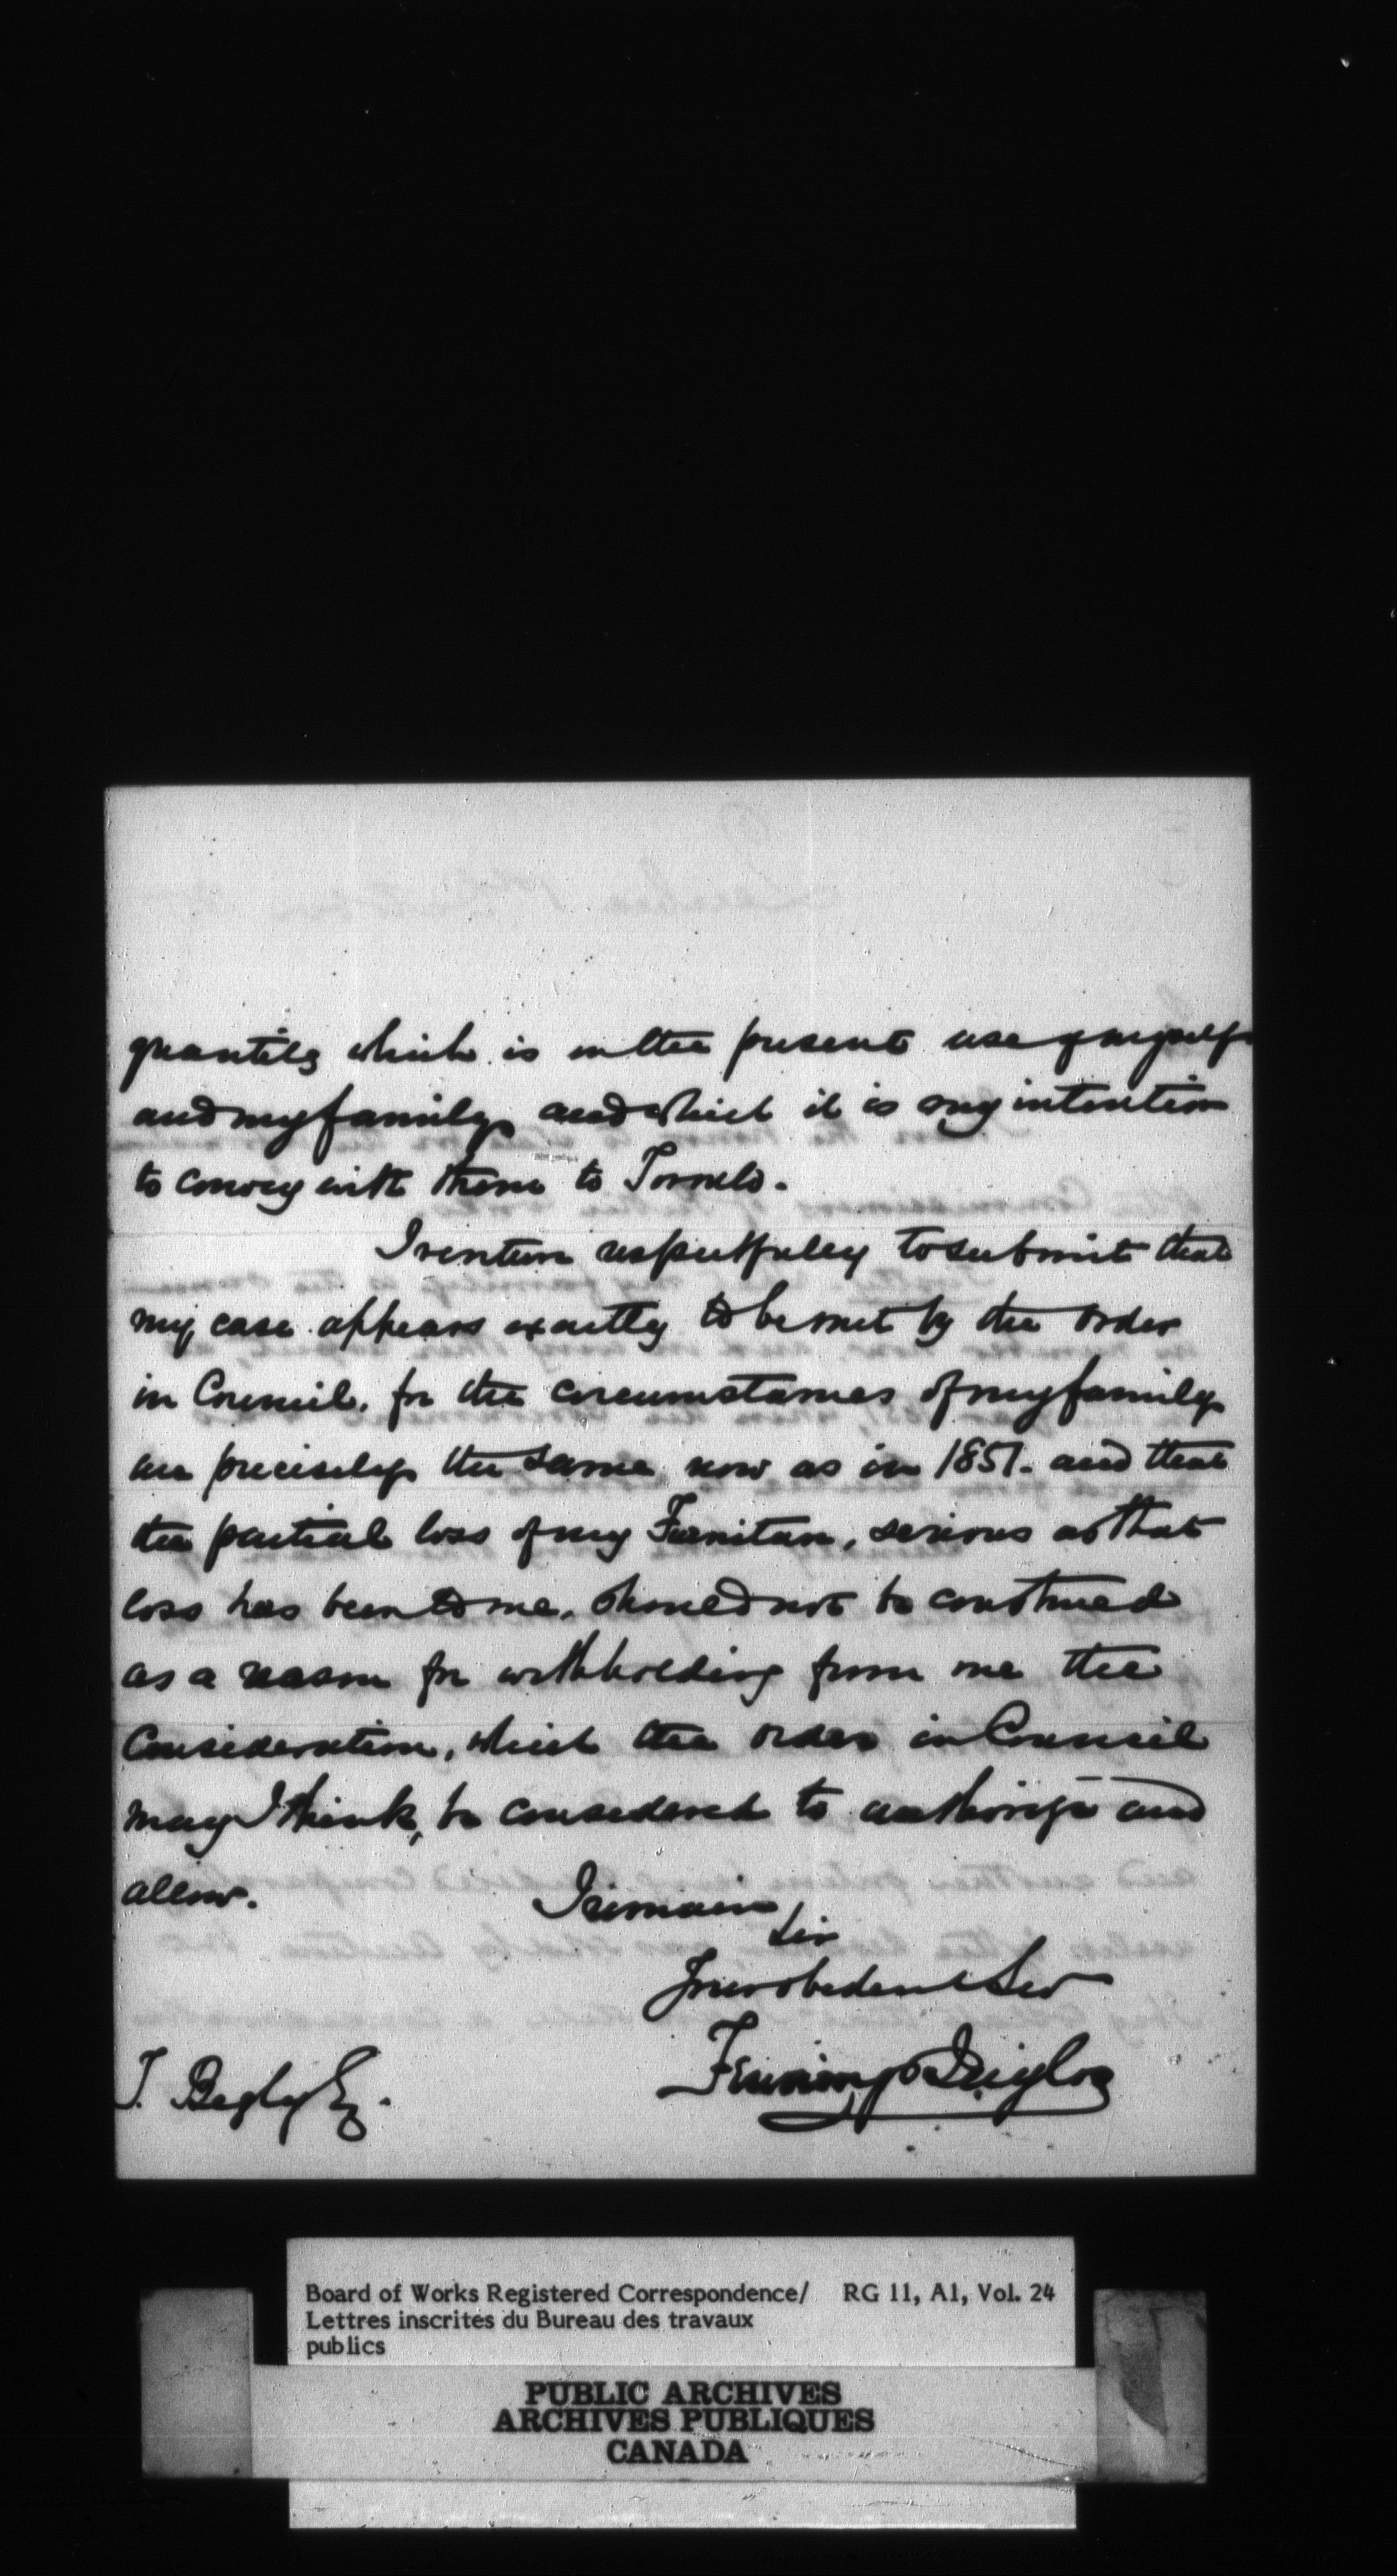 quantity which is in the present use of myself
and my family and which it is my intention
to convey with them to Toronto.
I venture respectfully to submit that
my case appears exactly to be met by the order
in Council, for the circumstances of my family
are precisely the same now as in 1851. and that
the partial loss of my Furniture, serious as that
loss has been to me, should not be construed
as a reason for withholding from me the
Consideration, which the order in Council
may I think, be considered to authorize and
allow.
I remain
Sir
Your obedient Ser
Fennings Taylor
T. Begly Esq.
Board of Works Registered Correspondence/ RG 11, A1, Vol. 24
Lettres inscrites du Bureau des travaux
publics
PUBLIC ARCHIVES
ARCHIVES PUBLIQUES
CANADA